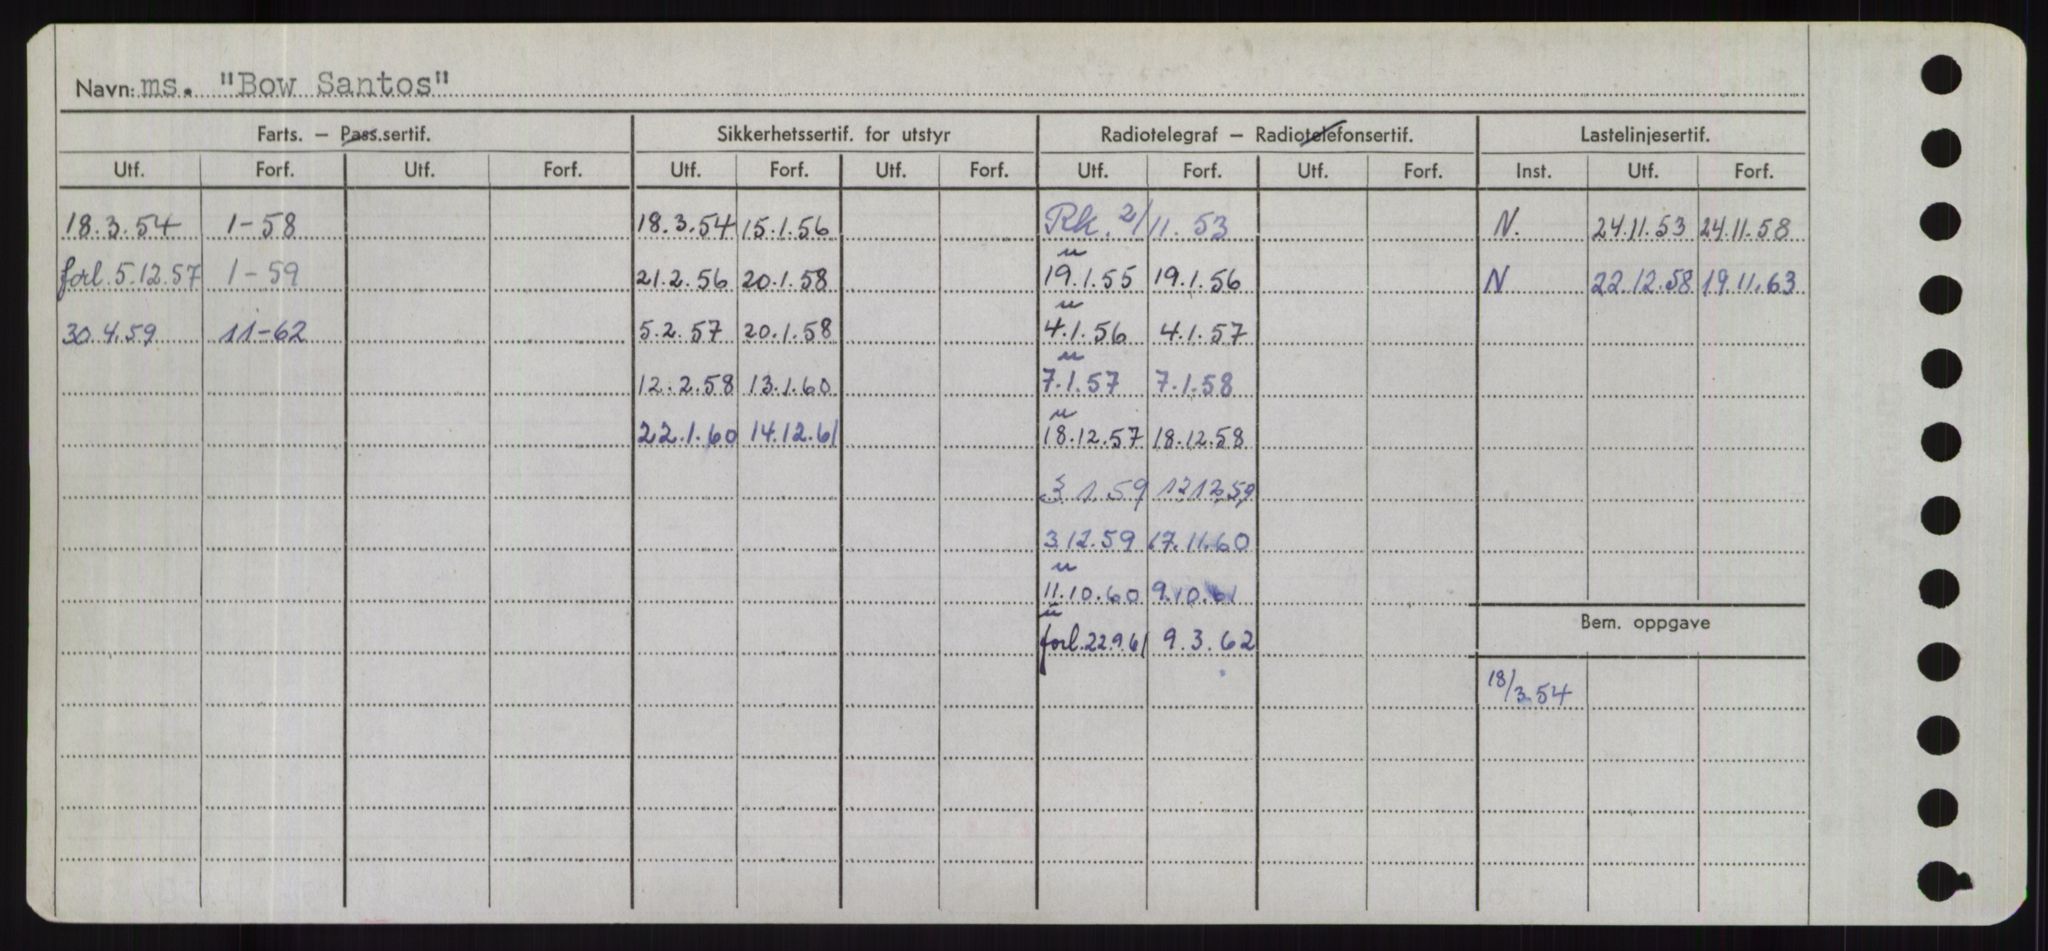 Navn: ms. "Bow Santos"
Farts. – Pass.sertif. Sikkerhetssertif. for utstyr Radiotelegraf – Radiotelefonsertif. Lastelinjesertif.
Utf. Forf. Utf. Forf. Utf. Forf. Utf. Forf. Utf. Forf. Utf. Forf. Inst. Utf. Forf.
18.3.54 1-58 18.3.54 15.1.56 Rk. 2/11.53 N. 24.11.53 24.11.58
forl. 5.12.57 1-59 21.2.56 20.1.58 19.1.55 19.1.56 N 22.12.58 19.11.63
30.4.59 11-62 5.2.57 20.1.58 4.1.56 4.1.57
12.2.58 13.1.60 7.1.57 7.1.58
22.1.60 14.12.61 18.12.57 18.12.58
3.1.59 12.12.59
3.12.59 17.11.60
11.10.60 9.10.61
Bem. oppgave
forl. 22.9.61 9.3.62
18/3.54